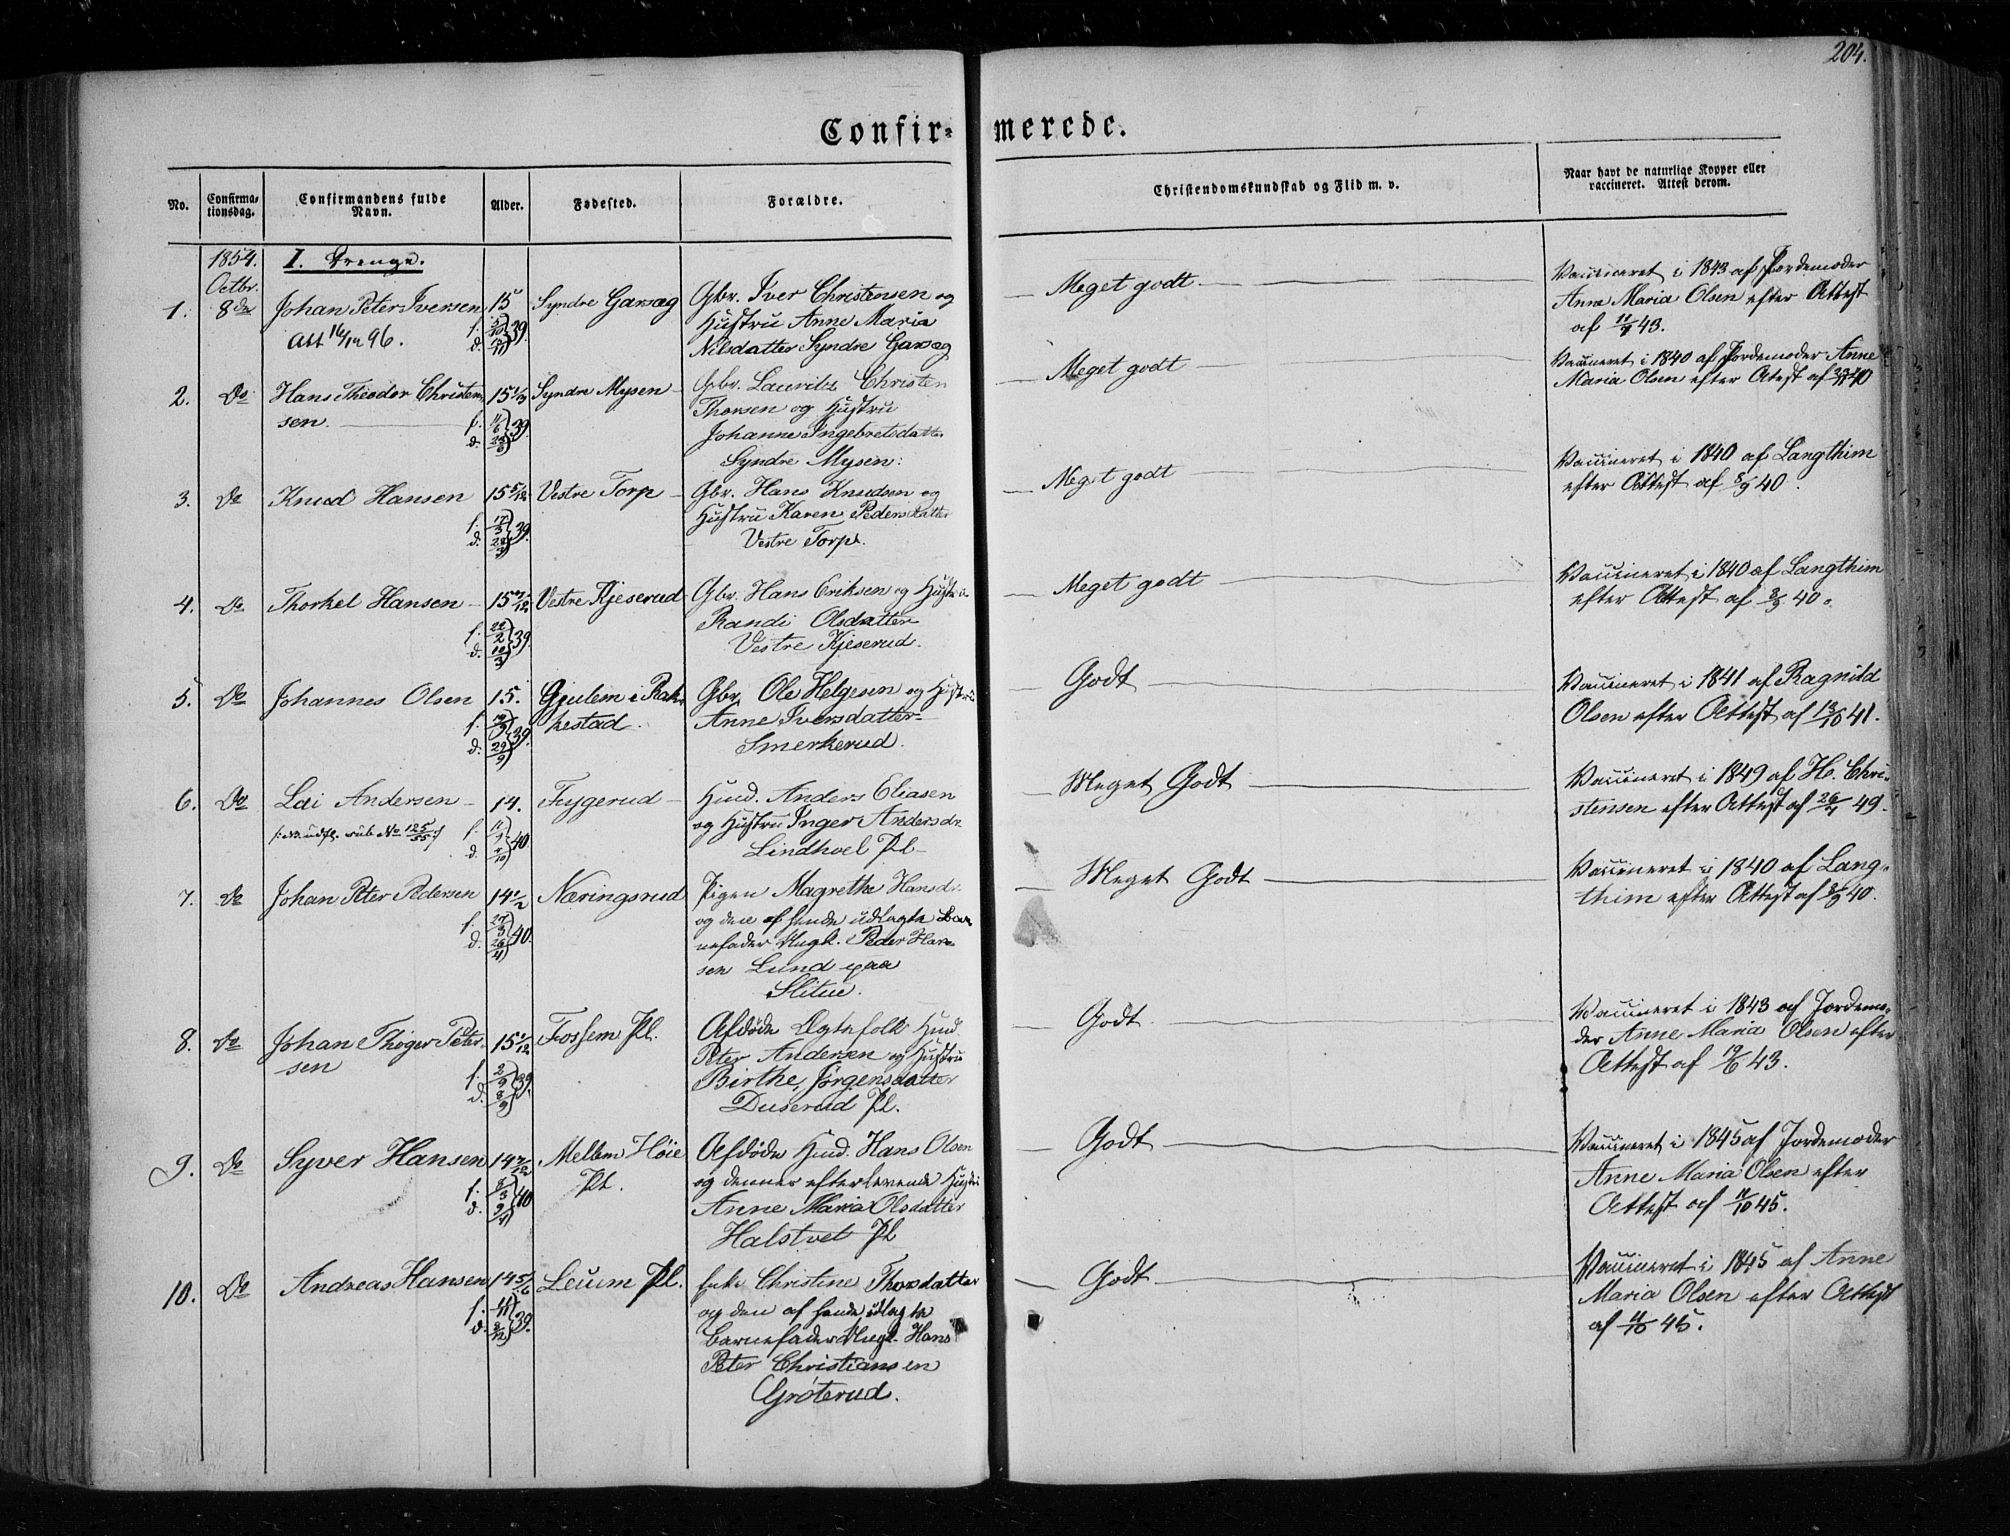 204.
Confir- merede.
No. Confirma-tionsdag. Confirmandens fulde Navn. Alder. Fødested. Forældre. Christendomskundskab og Flid m. v. Naar havt de naturlige Kopper eller vaccineret. Attest derom.
1854. I. Drenge.
Octbr.
1. 8de Johan Peter Iversen 15 Syndre Garseg Gbr. Iver Christensen og
Att 16/12 96. f. d. 39. Hustru Anne Maria
Nilsdatter Syndre Garseg
Meget godt
Vaccineret i 1843 af Jordemoder
Anne Maria Olsen efter Attest
af 43.
2. Do Hans Theodor Christen- 15 1/3 Syndre Mysen Gbr. Laurits Christen
sen. f. 11/6 d. 39. Thorsen og Hustru
Johanne Ingebretsdatter
Syndre Mysen.
Meget godt
Vaccineret i 1840 af Jordemoder Anne
Maria Olsen efter Attest af 40
3. Do Knud Hansen 15 5/12 Vestre Torp Gbr. Hans Knudsen og
f. d. 39. Hustru Karen Pedersdatter
Vestre Torp.
Meget godt
Vaccineret i 1840 af Langthim
efter Attest af 8/9 40.
4. Do Thorkel Hansen 15 7/12 Vestre Kjeserud Gbr. Hans Eriksen og Hustru
f. 22/2 d. 10/3 39. Randi Olsdatter
Vestre Kjeserud.
Meget godt
Vaccineret i 1840 af Langthim
efter Attest af 8/9 40.
5. Do Johannes Olsen 15. Gjulem i Rak- Gbr. Ole Helgesen og Hustru
f. d. 29/9 39. kestad. Anne Iversdatter
Smerkerud.
Godt
Vaccineret i 1841 af Ragnild
Olsen efter Attest af 13/10 41.
6. Do Lai Andersen 14. Frygerud Husd. Anders Eliasen
/: see udfl. sub No 125/55 :/ f. d. 40. og Hustru Inger Andersdr.
Lindhoel Pl.
Meget Godt
Vaccineret i 1849 af H. Chri-
stensen efter Attest af 49.
7. Do Johan Peter Pedersen 14 1/2 Næringsrud Pigen Magrethe Hansdr.
f. d. 26/4 40. og den af hende udlagte Bar-
nefader Ungk. Peder Han-
sen Lund paa
Slitue.
Meget Godt
Vaccineret i 1840 af Lang-
thim efter Attest af 8/9 40.
8. Do Johan Thøger Peter- 15 1/12 Fossem Pl. Afdøde Ægtefolk Husd.
sen f. d. 8/9 39. Peter Andersen og Hustru
Birthe Jørgensdatter
Duserud Pl.
Godt
Vaccineret i 1843 af Jordemo-
der Anne Maria Olsen efter
Attest af 43.
9. Do Syver Hansen 14 7/12 Mellem Høie Afdøde Husd. Hans Olsen
f. d. 40 Pl. og dennes efterlevende Hustru
Anne Maria Olsdatter
Halstvet Pl.
Godt
Vaccineret i 1845 af Jordemoder
Anne Maria Olsen efter
Attest af 11/10 45.
10. Do Andreas Hansen 14 5/6 Leuum Pl. Enke Christine Thorsdatter
f. d. 39. og den af hende udlagte
Barnefader Ungk. Hans
Peter Christiansen
Grøterud.
Godt
Vaccineret i 1845 af Anne
Maria Olsen efter Attest
af 11/10 45.